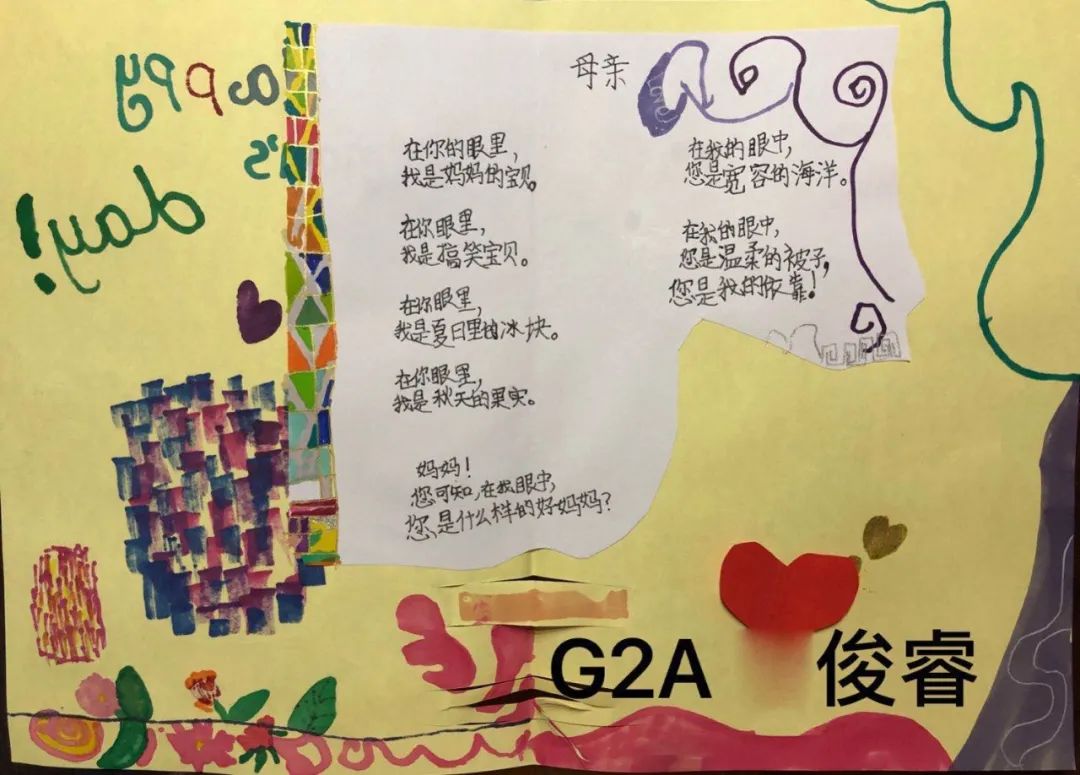 appy
's
day!
母亲
在你的眼里，
我是妈妈的宝贝。
在你眼里，
我是搞笑宝贝。
在你眼里，
我是夏日里的冰块。
在你眼里，
我是秋天的果实。
妈妈！
您可知，在我眼中，
您是什么样的好妈妈？
在我的眼中，
您是宽容的海洋。
在我的眼中，
您是温柔的被子，
您是我的依靠！
G2A
俊睿